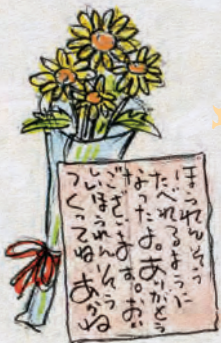 ほうれんそう
たべれるように
なったよ。ありがとう
ございます。おい
しいほうれんそう
つくってね。あかね